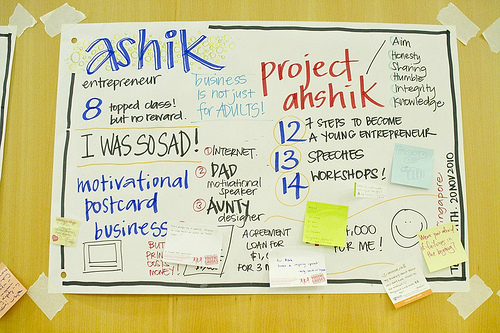 ashik
entrepreneur
8 topped class!
but no reward.
I WAS SO SAD!
motivational
postcard
business
BUT
PRIN
COSTS
MONEY!
business
is not just
for ADULTS!
① INTERNET.
② DAD
motivational
speaker
③ AUNTY
designer
AGREEMENT
LOAN FOR
$1,
FOR 3 M
project
ahshik
Aim
Honesty
Sharing
Humble
Integrity
Knowledge
12 7 STEPS TO BECOME
A YOUNG ENTREPRENEUR
13 SPEECHES
14 WORKSHOPS!
,000
R ME!
ingapore
TH. 20NOV2010